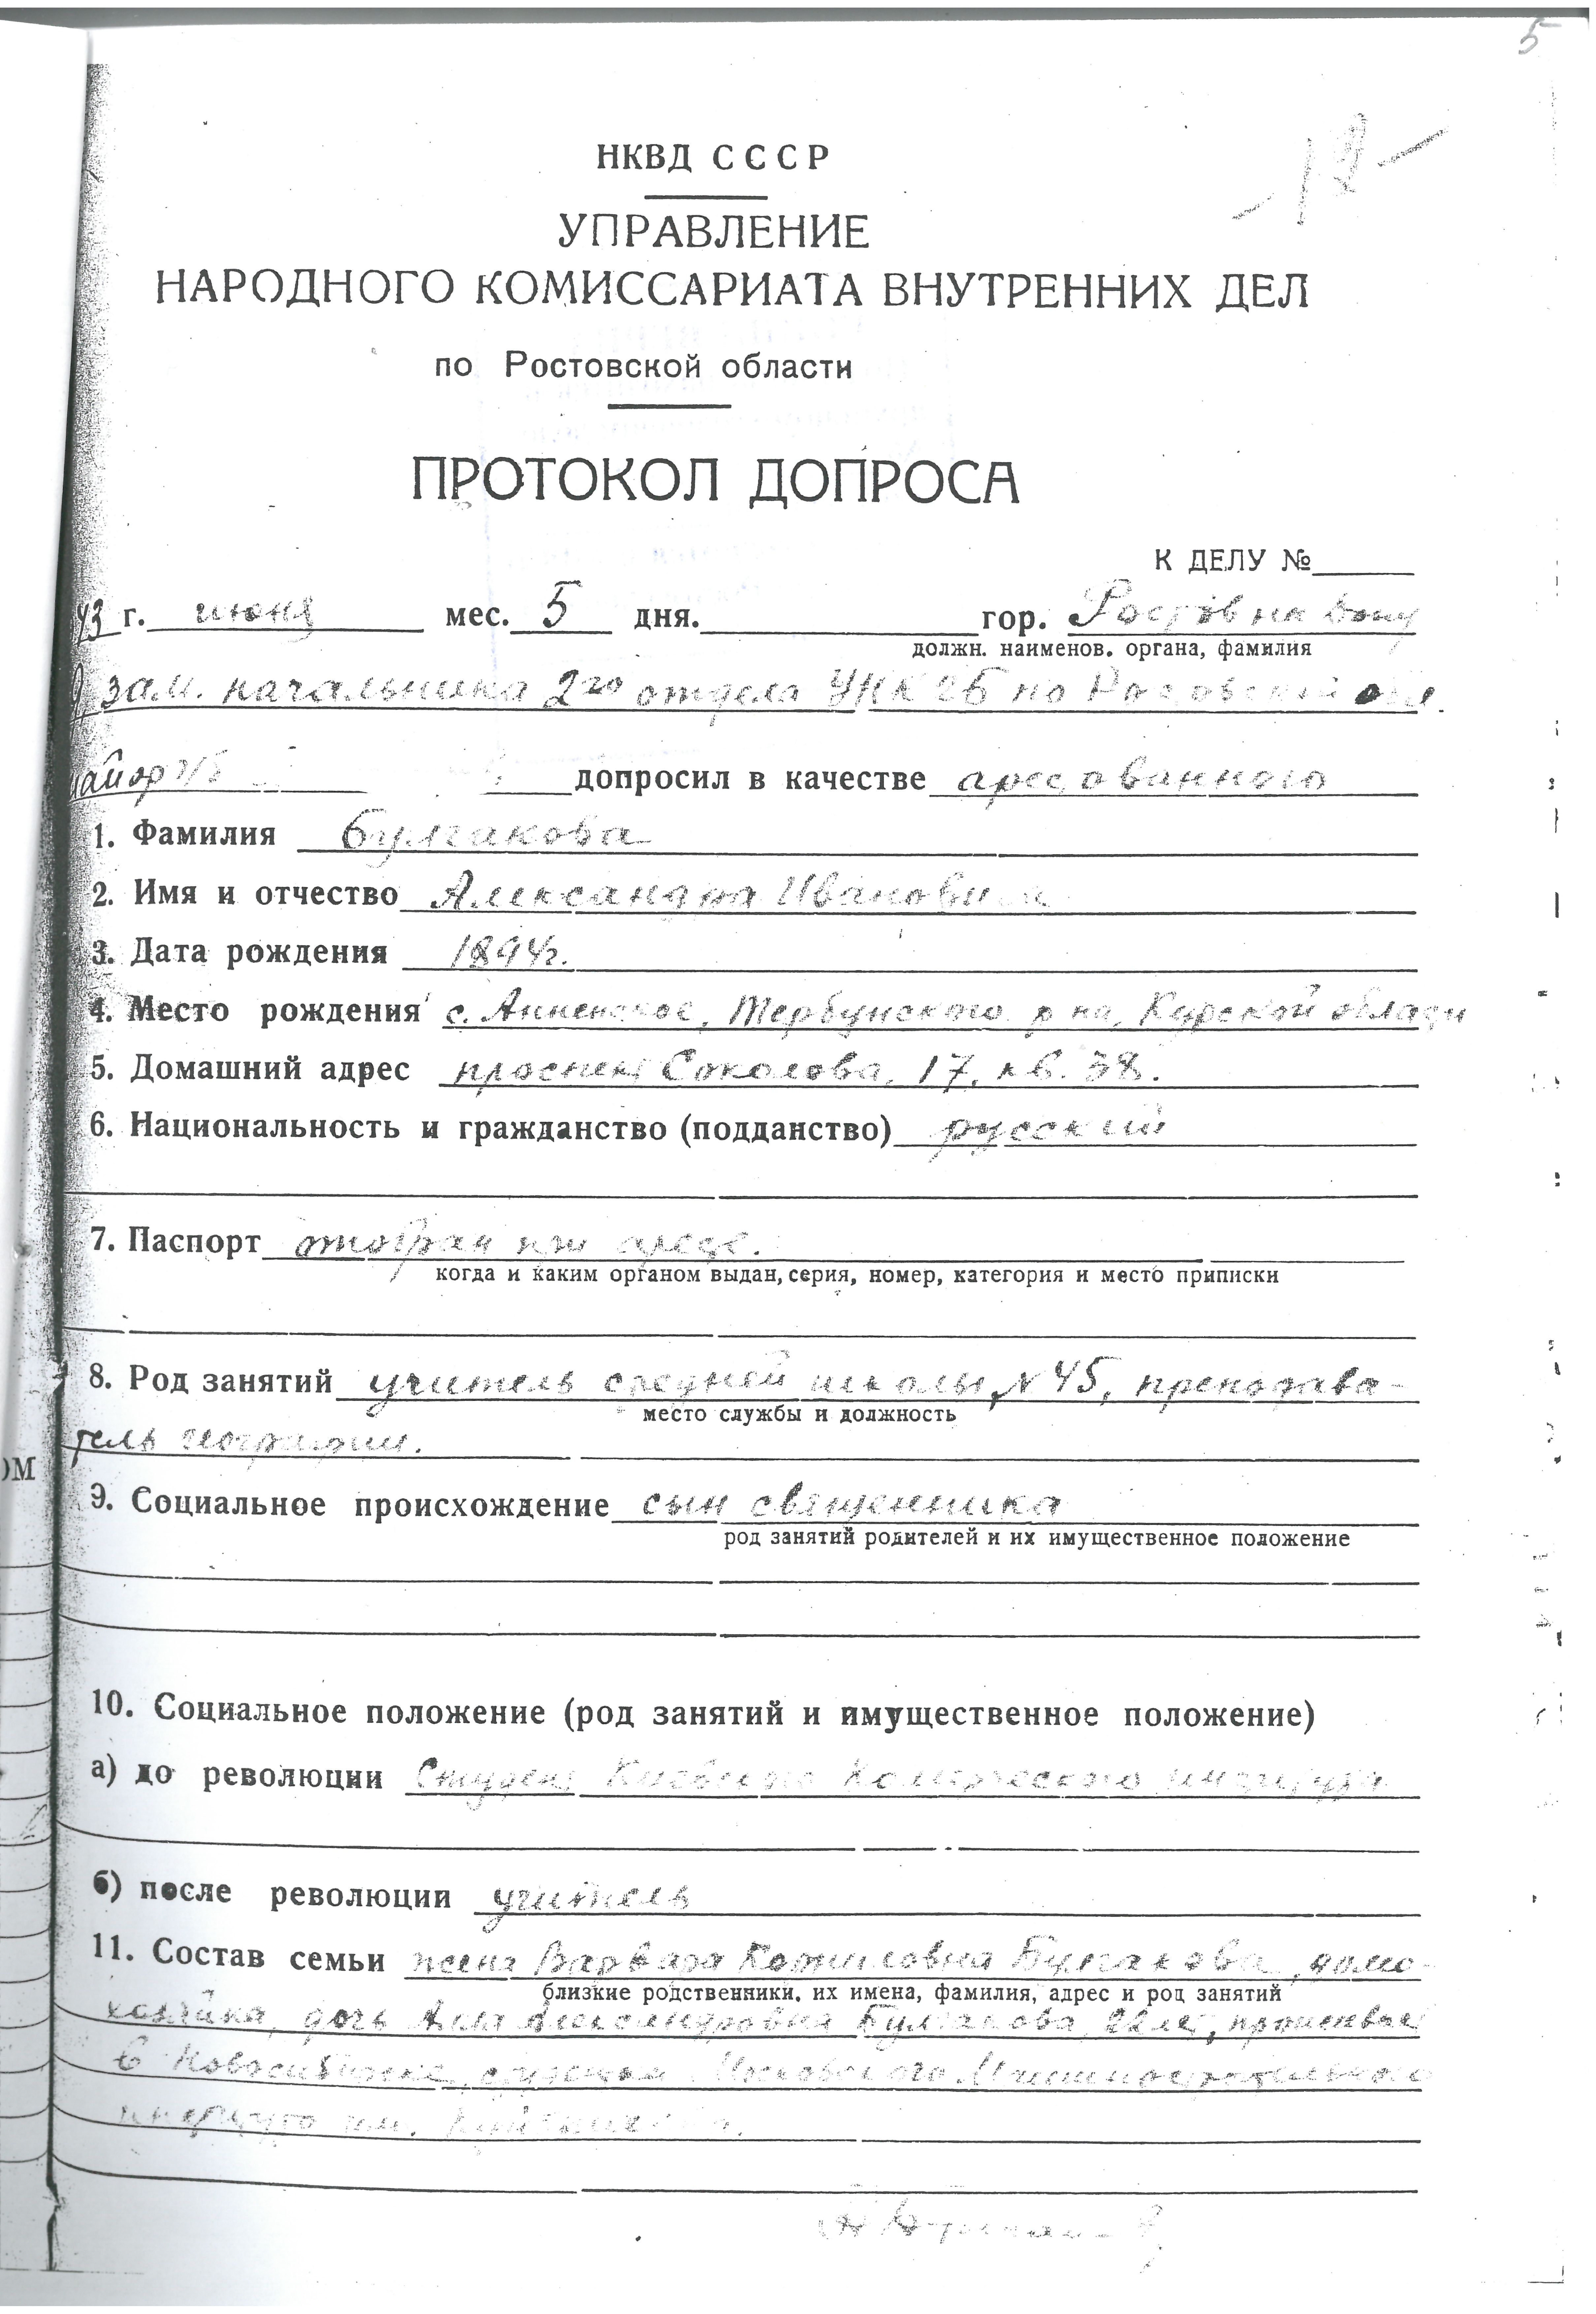 5
– 12 –
НКВД СССР
УПРАВЛЕНИЕ
НАРОДНОГО КОМИССАРИАТА ВНУТРЕННИХ ДЕЛ
по Ростовской области
ПРОТОКОЛ ДОПРОСА
К ДЕЛУ №
43 г. июня мес. 5 дня. гор. Ростов на Дону
должн. наименов. органа, фамилия
зам. начальника 2го отдела УНКГБ по Ростовской обл.
майор г/б допросил в качестве арестованного
1. Фамилия Булгакова
2. Имя и отчество Александра Ивановича
3. Дата рождения 1894г.
4. Место рождения с. Анненское, Тербунского р на, Курской области
5. Домашний адрес проспект Соколова, 17, кв. 38.
6. Национальность и гражданство (подданство) русский
7. Паспорт отобран при аресте.
когда и каким органом выдан, серия, номер, категория и место приписки
8. Род занятий учитель средней школы N 45, преподава-
место службы и должность
тель географии.
ОМ
9. Социальное происхождение сын священника
род занятий родителей и их имущественное положение
10. Социальное положение (род занятий и имущественное положение)
а) до революции Студент Киевского Комерческого института
б) после революции учитель
11. Состав семьи жена Варвара Булгакова, домо-
близкие родственники, их имена, фамилия, адрес и род занятий
хозяйка, дочь Александровна Булгакова, 22 лет, проживает
в Новосибирске, студентка Московского
института им.